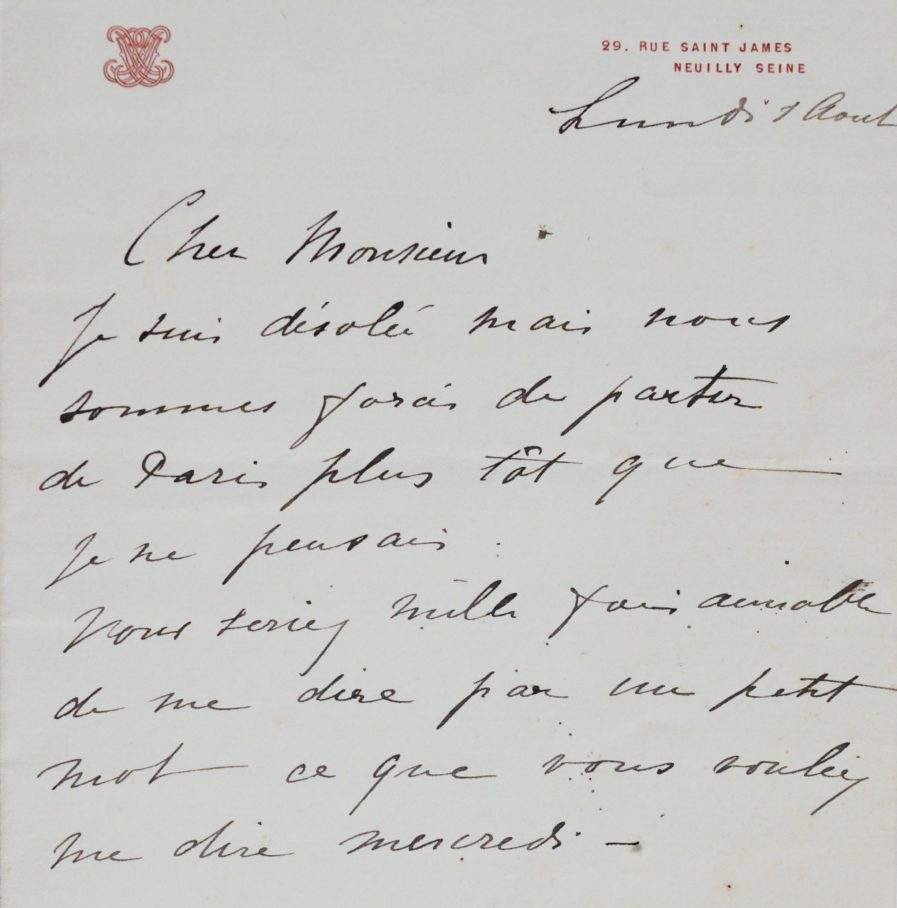 29. RUE SAINT JAMES
NEUILLY SEINE
Lundi Aout
Cher Monsieur
Je suis désolée mais nous
sommes forcés de partir
de Paris plus tôt que
je ne pensais.
Vous seriez mille fois aimable
de me dire par un petit
mot ce que vous vouliez
me dire mercredi –